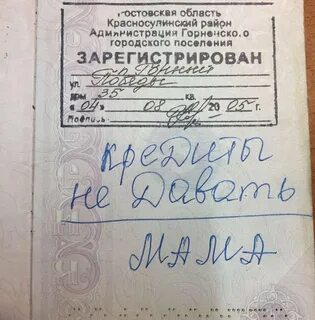 Ростовская область
Красносулинский район
Администрация Горненского
городского поселения
ЗАРЕГИСТРИРОВАН
п. Горный
ул. Победы
дом 35 кв.
«04» 08 2005 г.
Подпись
кредиты
не давать
МАМА